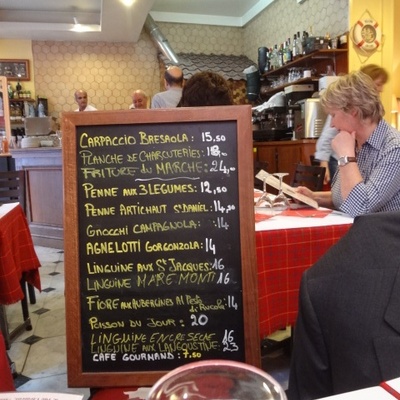 CARPACCIO BRESAOLA : 15,50
PLANCHE DE CHARCUTERIES : 18,-
FRITURE DU MARCHE : 24,00
PENNE AUX 3 LEGUMES : 12,50
PENNE ARTICHAUT ST DANIEL : 14,50
GNOCCHI CAMPAGNOLA : 14
AGNELOTTI GORGONZOLA : 14
LINGUINE AUX ST JACQUES : 16
LINGUINE MARE MONTI 16
FIORE AUX AUBERGINES AL Pesto di Rucola : 14
POISSON DU JOUR : 20
LINGUINE ENCRE SECHE 16
LINGUINE AUX LANGOUSTINE. 23
CAFÉ GOURMAND : 7.50